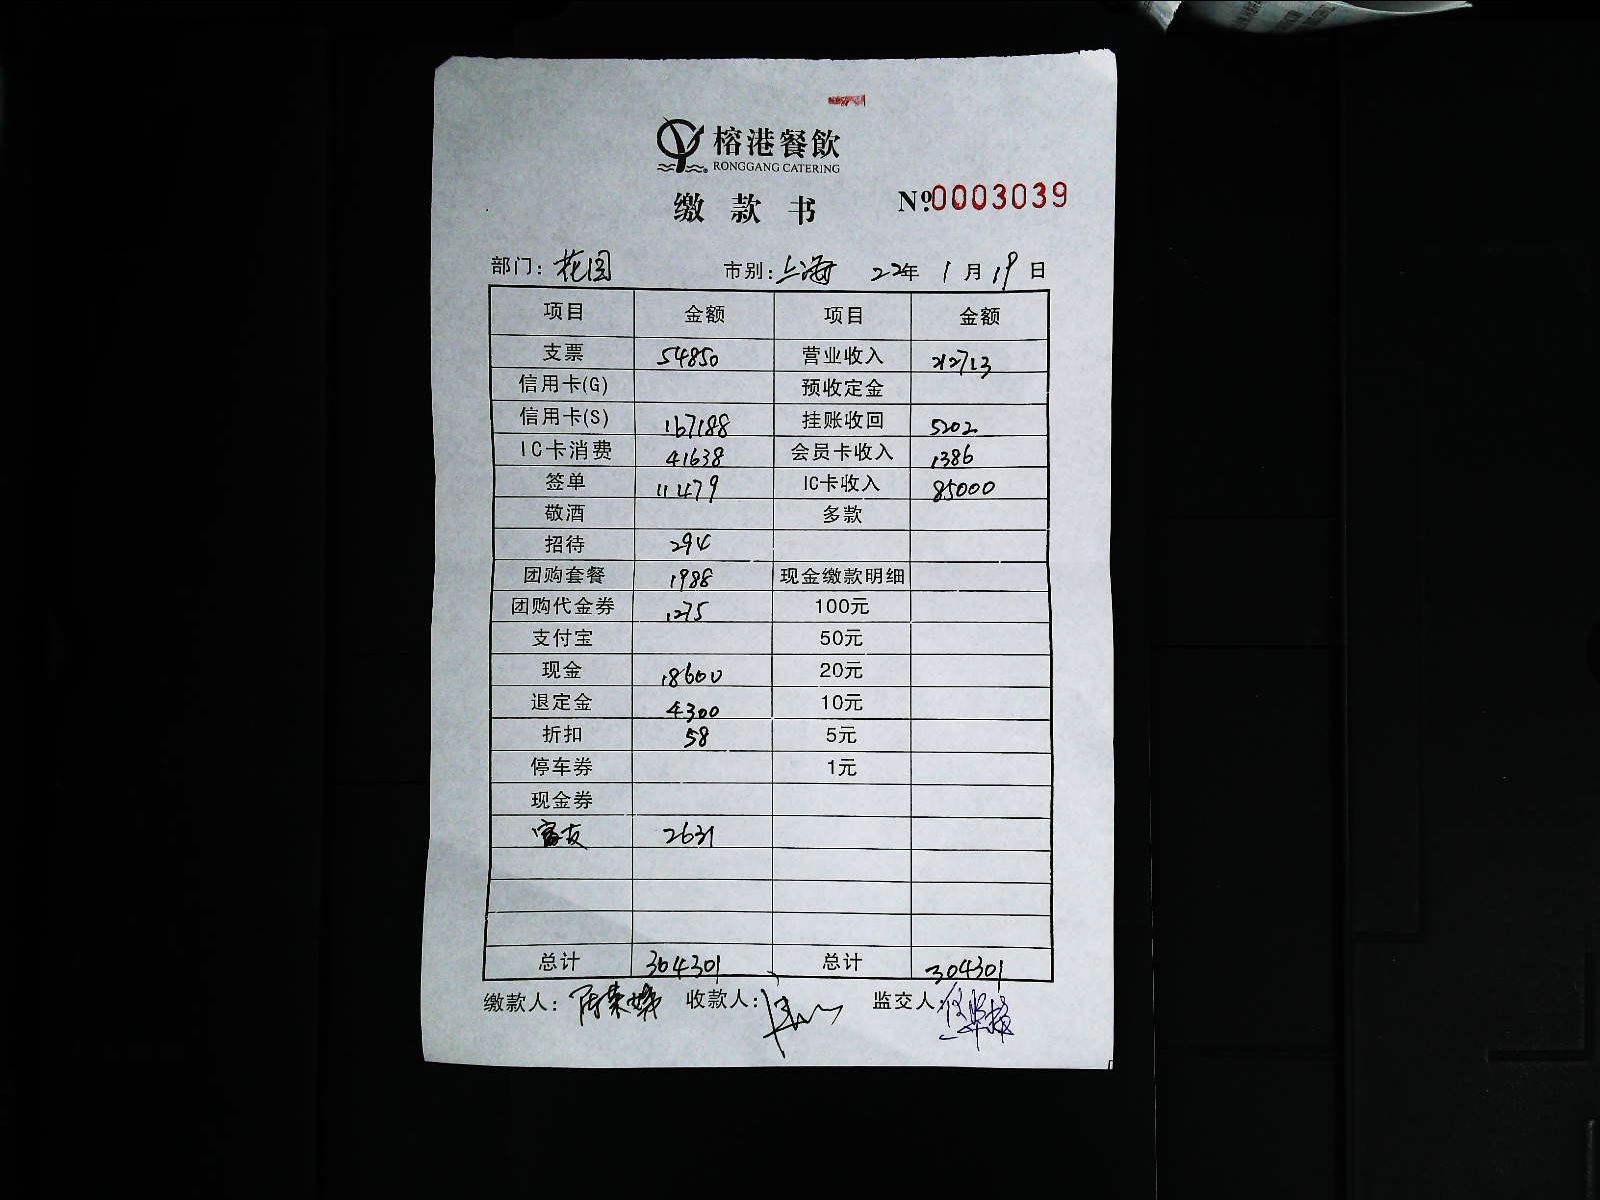 榕港餐飲
RONGGANG CATERING
缴款书 №0003039
部门：花园 市别：上海 22年 1月19日
项目 金额 项目 金额
支票 54850 营业收入 212713
信用卡(G) 预收定金
信用卡(S) 167188 挂账收回 5202
IC卡消费 41638 会员卡收入 1386
签单 11479 IC卡收入 85000
敬酒 多款
招待 294
团购套餐 1988 现金缴款明细
团购代金券 1275 100元
支付宝 50元
现金 18600 20元
退定金 4300 10元
折扣 58 5元
停车券 1元
现金券
富友 2631
总计 304301 总计 304301
缴款人： 收款人： 监交人：